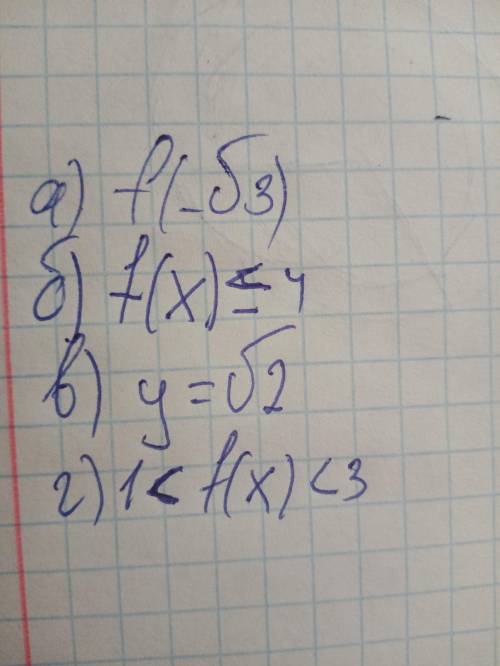 а) f(-√3)
б) f(x) ≤ 4
в) y = √2
г) 1 < f(x) < 3